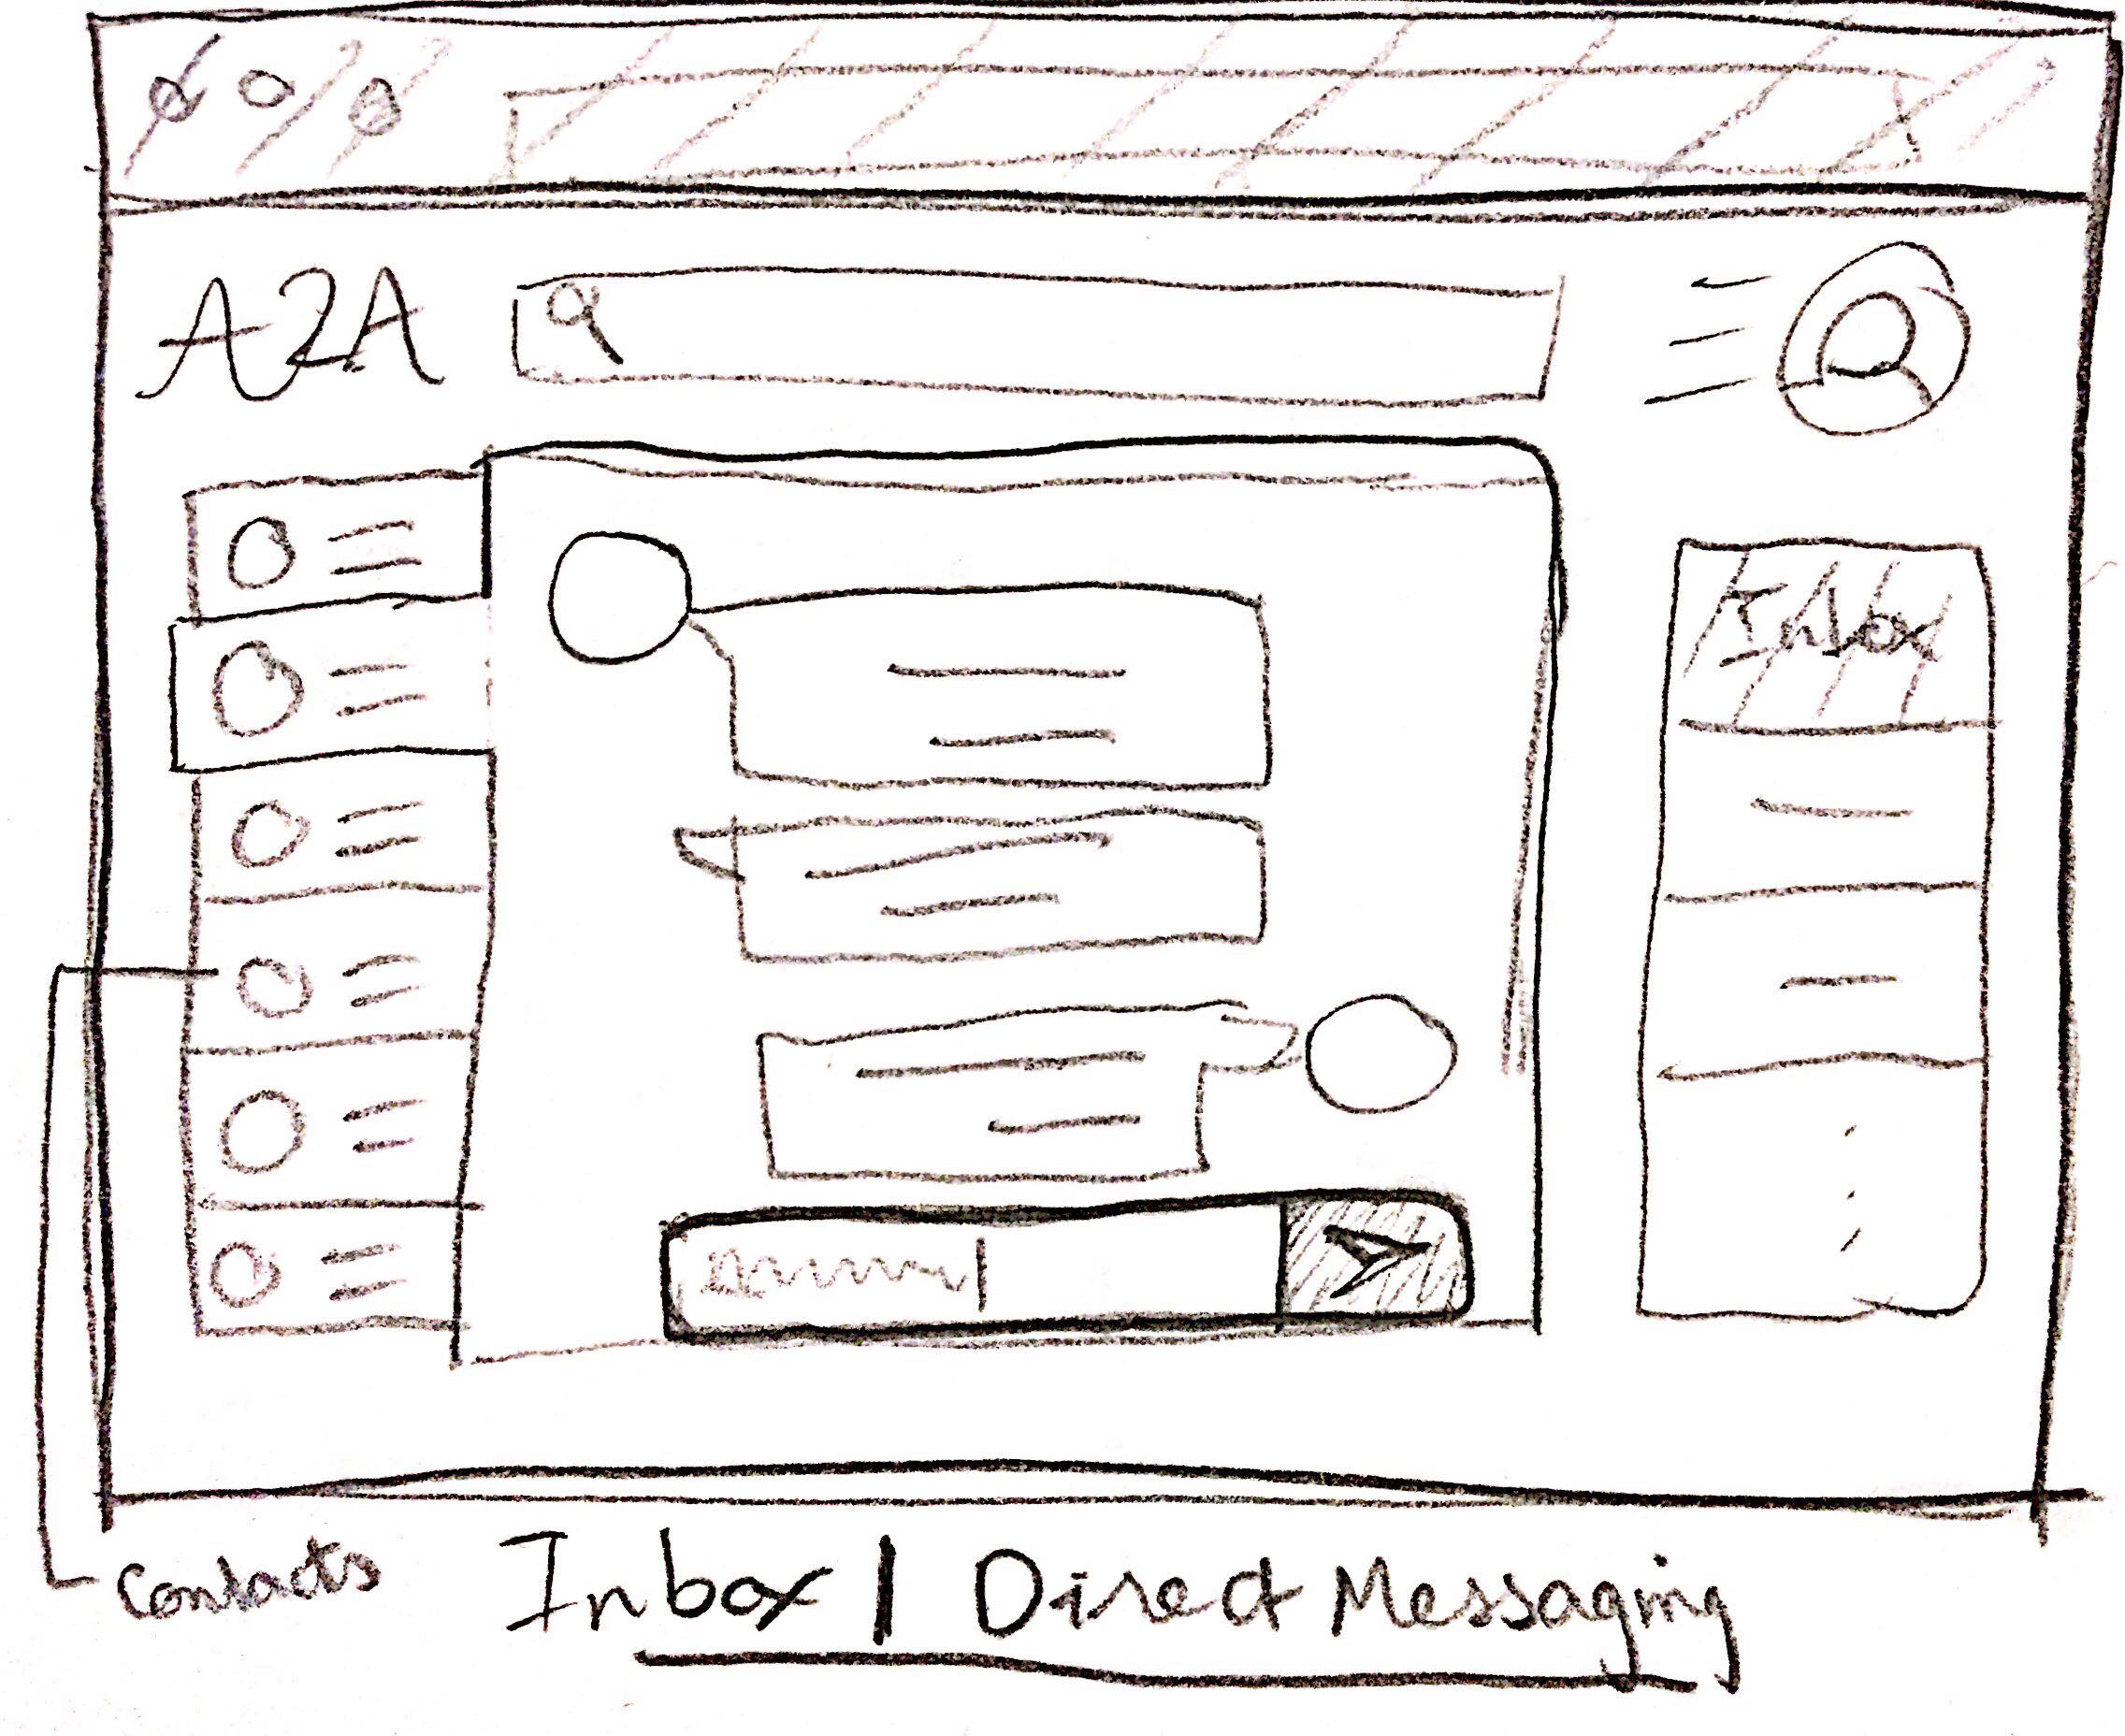 A2A
Inbox
Contacts
Inbox | Direct Messaging